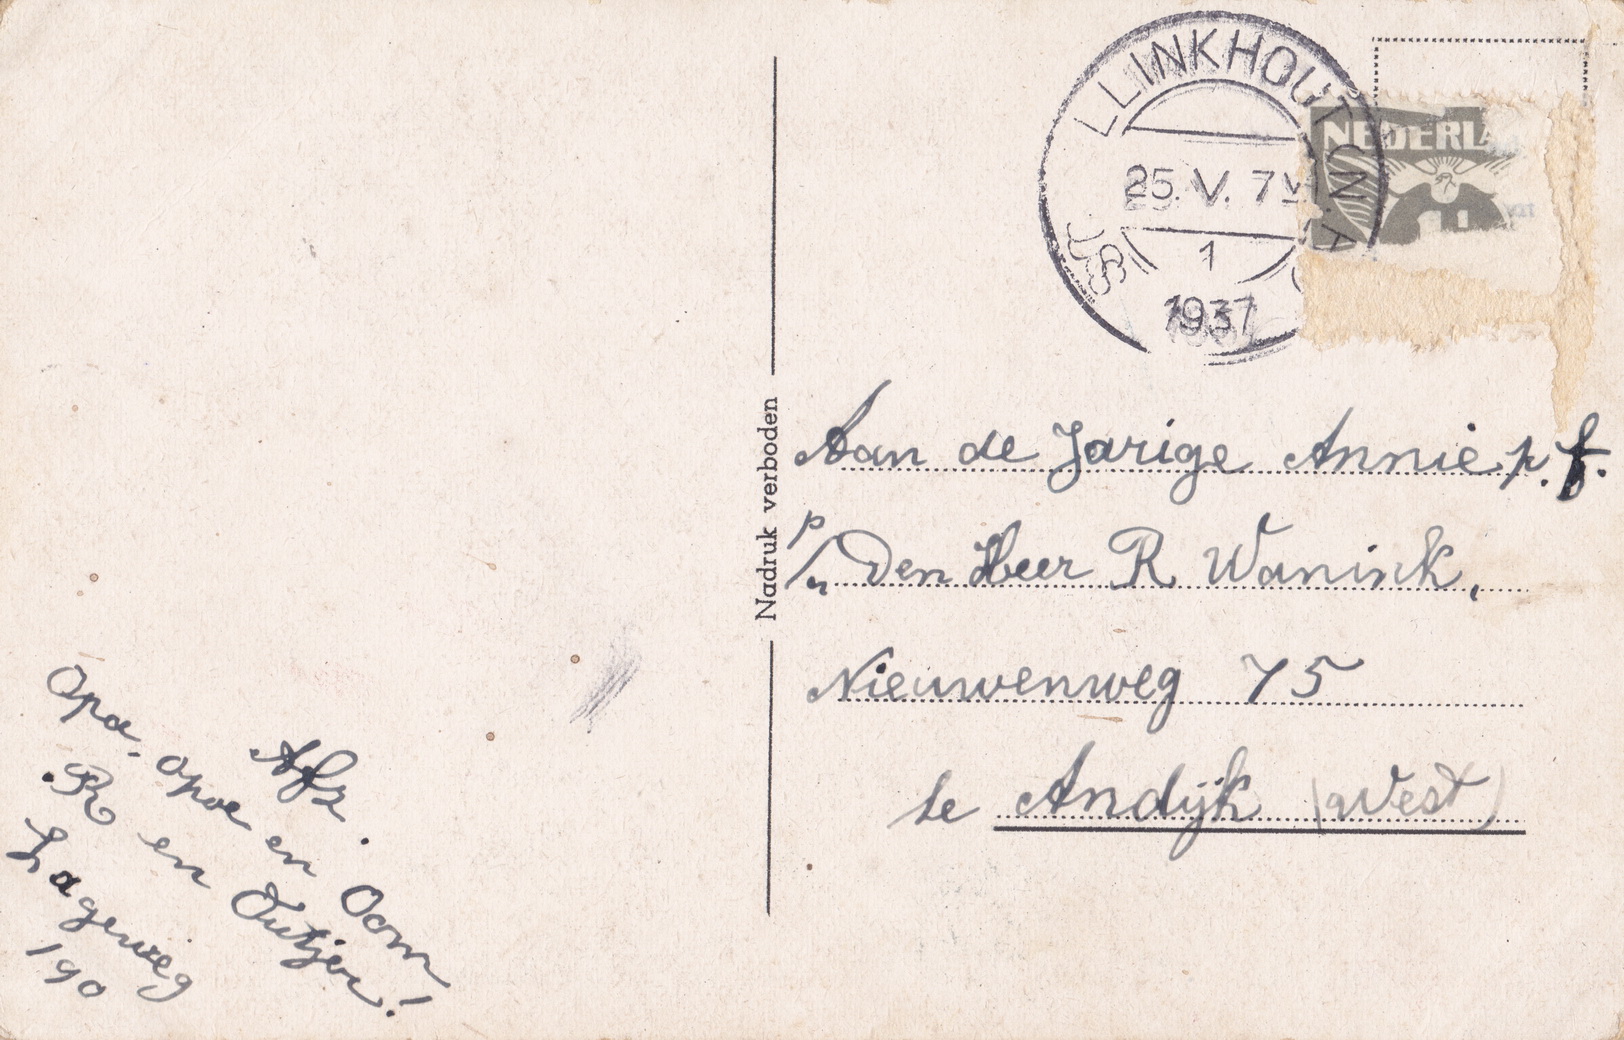 LLINKHOUT
25. V. 7
1
1937
NEDERLA
Nadruk verboden
Aan de Jarige Annie p. f.
p/a Den Heer R Wanink,
Nieuwenweg 75
te Andijk (West)
Afz.
Opa, opoe en Oom
R en Tutjen!
Lageweg
190